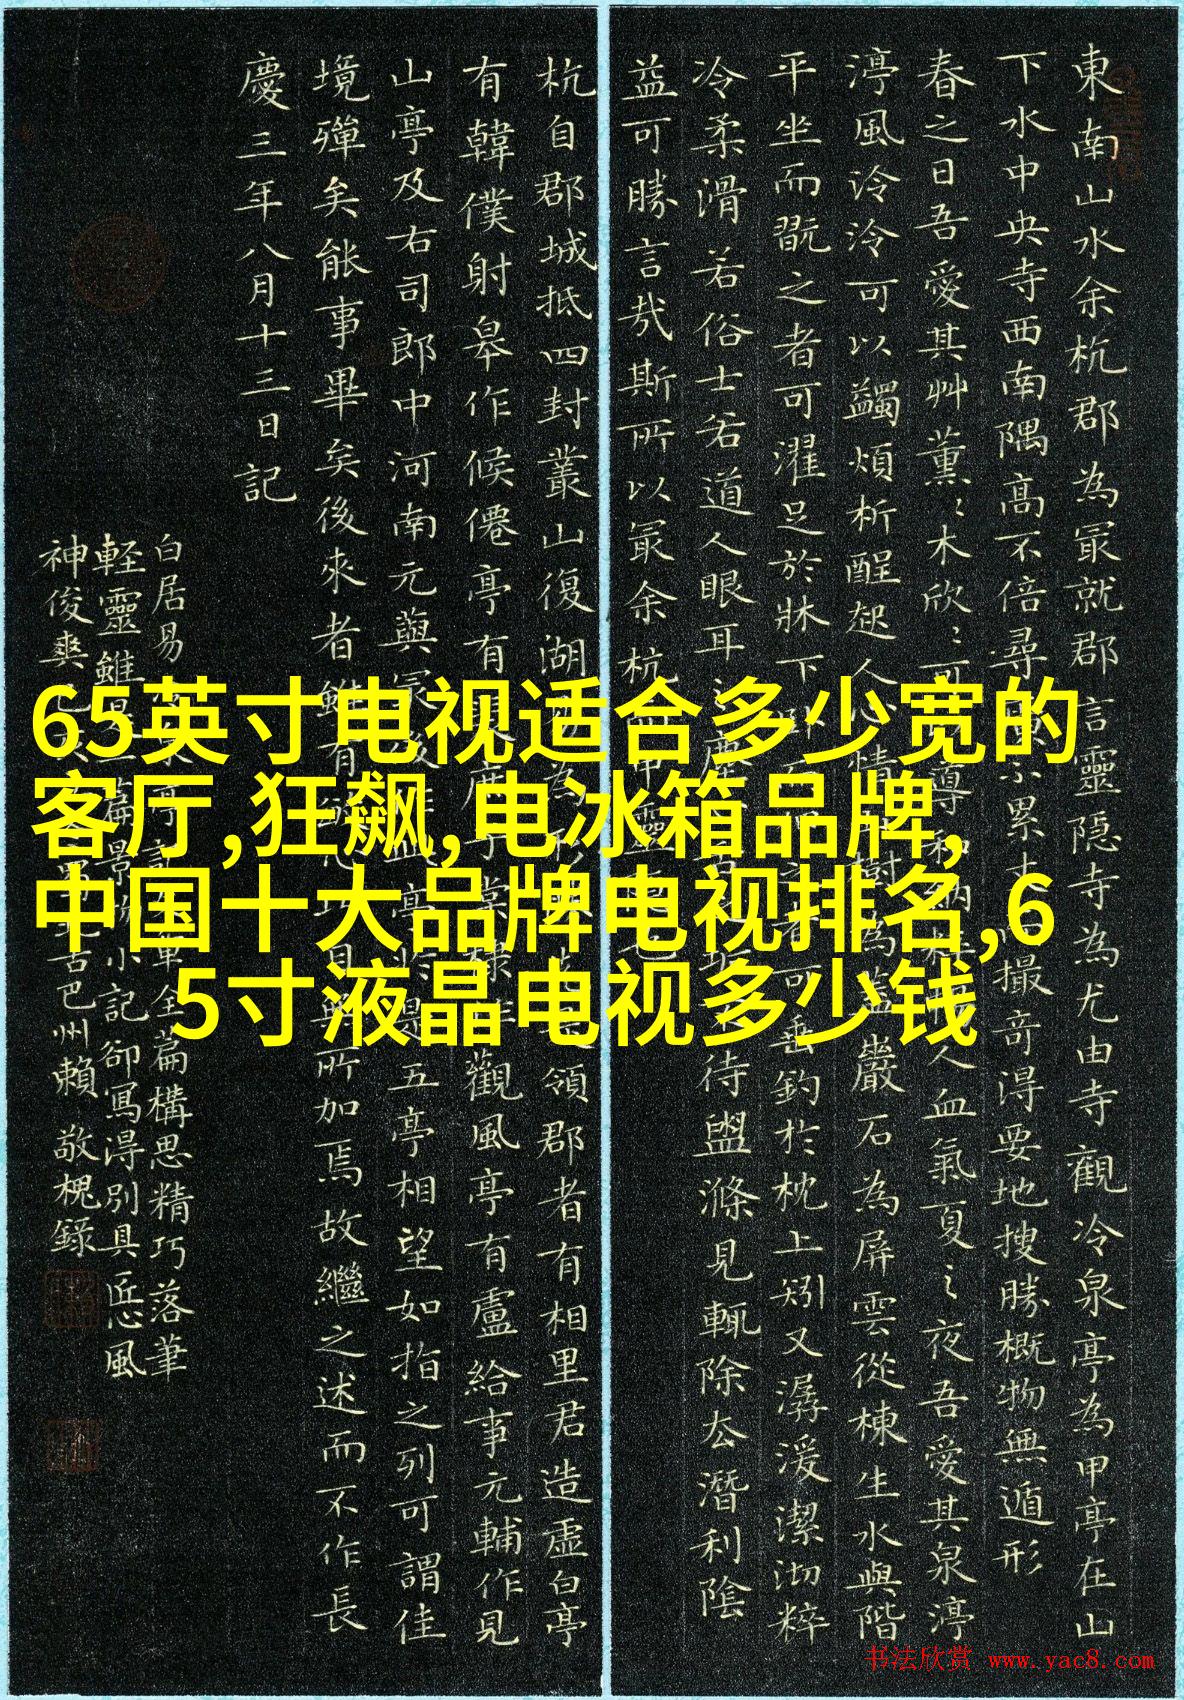 65英寸电视适合多少宽的
客厅,狂飙,电冰箱品牌,
中国十大品牌电视排名,6
5寸液晶电视多少钱
東南山水余杭郡為冣就郡言靈隐寺為尤由寺觀冷泉亭為甲亭在山
下水中央寺西南隅高不倍尋不累撮奇得要地搜勝概物無遁形
春之日吾愛其艸薰〻木欣〻可導和納人血氣夏之夜吾愛其泉渟
渟風泠泠可以蠲煩析酲起人心情樹為蓋巖石為屏雲從棟生水與階
平坐而翫之者可濯足於牀下者可垂釣於枕上矧又潺湲潔沏粹
冷柔滑若俗士若道人眼耳之塵待盥滌見輒除去潛利陰
益可勝言哉斯所以冣余杭而甲靈也
杭自郡城抵四封叢山復湖為形領郡者有相里君造虛白亭
有韓僕射皋作候僊亭有裴庶子棠棣作觀風亭有盧給事元輔作見
山亭及右司郎中河南元藇最後作此亭於是五亭相望如指之列可謂佳
境殫矣能事畢矣後來者雖有目無所加焉故繼之述而不作長
慶三年八月十三日記
白居易亭全篇構思精巧落筆
軽靈雖是一篇景物小記卻寫得別具匠心風
神俊爽吉巴州賴敬槐錄
书法欣赏 www.yac8.com